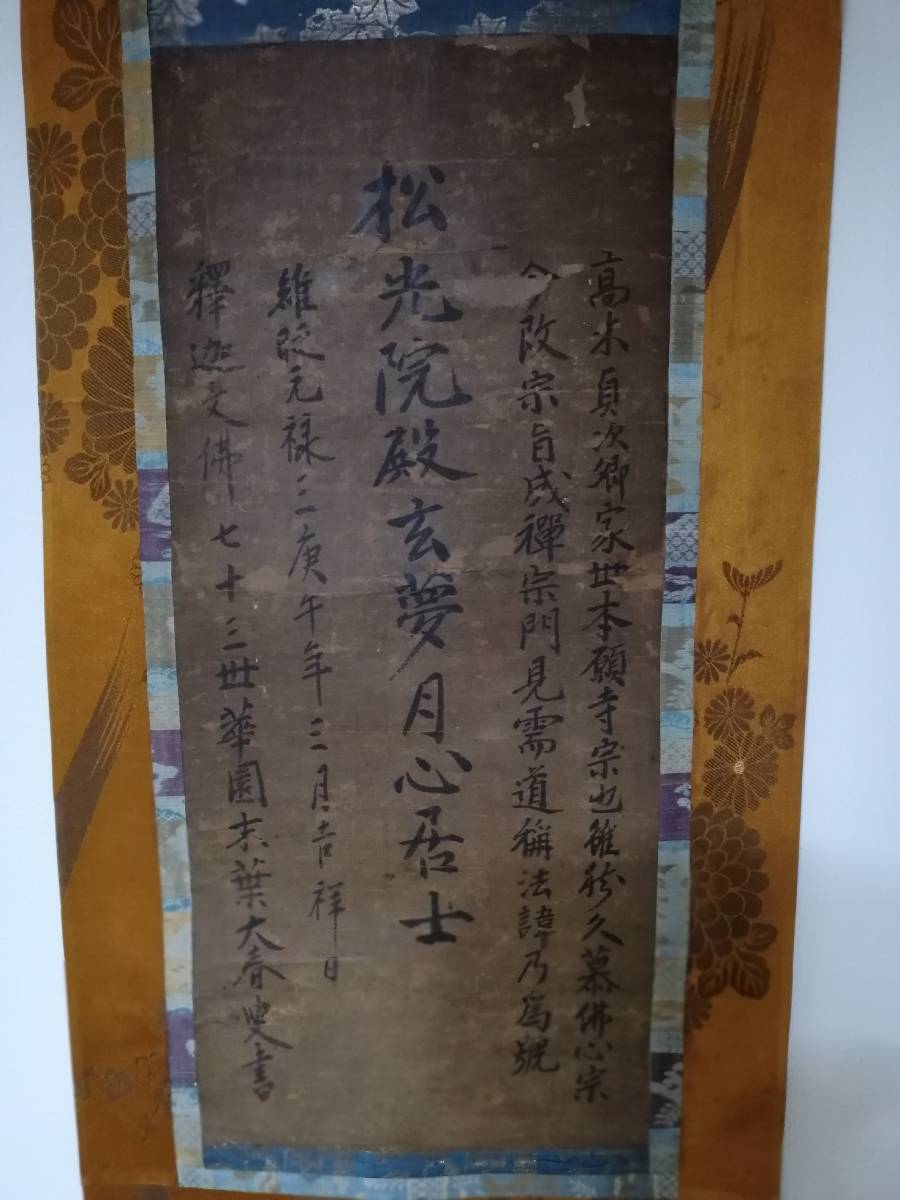 高木貞次卿家世本願寺宗也雖然久慕佛心宗
今改宗旨成禪宗門見需道稱法諱乃爲號
松光院殿玄夢月心居士
維時元禄三庚午年三月吉祥日
釋迦文佛七十三世華園末葉大春叟書